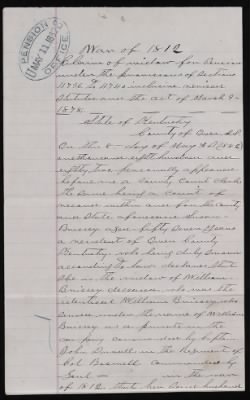 PENSION OFFICE
MAY 11 1882
War of 1812
Claim of widow for Pension
under the provisions of Sections
4736 to 4740 inclusive revised
Statutes and the act of March 9th
1878.
State of Kentucky
County of Owen SS
On this 8 day of May AD 1882
one thousand eight hundred and
eighty two personally appeared
before me a County Court Clerk
the same being a Court of
record within and for the County
and State aforesaid Susan
Brissey aged fifty seven years
a resident of Owen County
Kentucky who being duly sworn
according to law declares that
she is the widow of William
Brissey deceased who was the
identical William Brissey who
served under the name of William
Brissey as a private in the
company commanded by Capt
John Duvall in the regiment of
Col Boswell commanded by
Genl in the war
of 1812 that her said husband